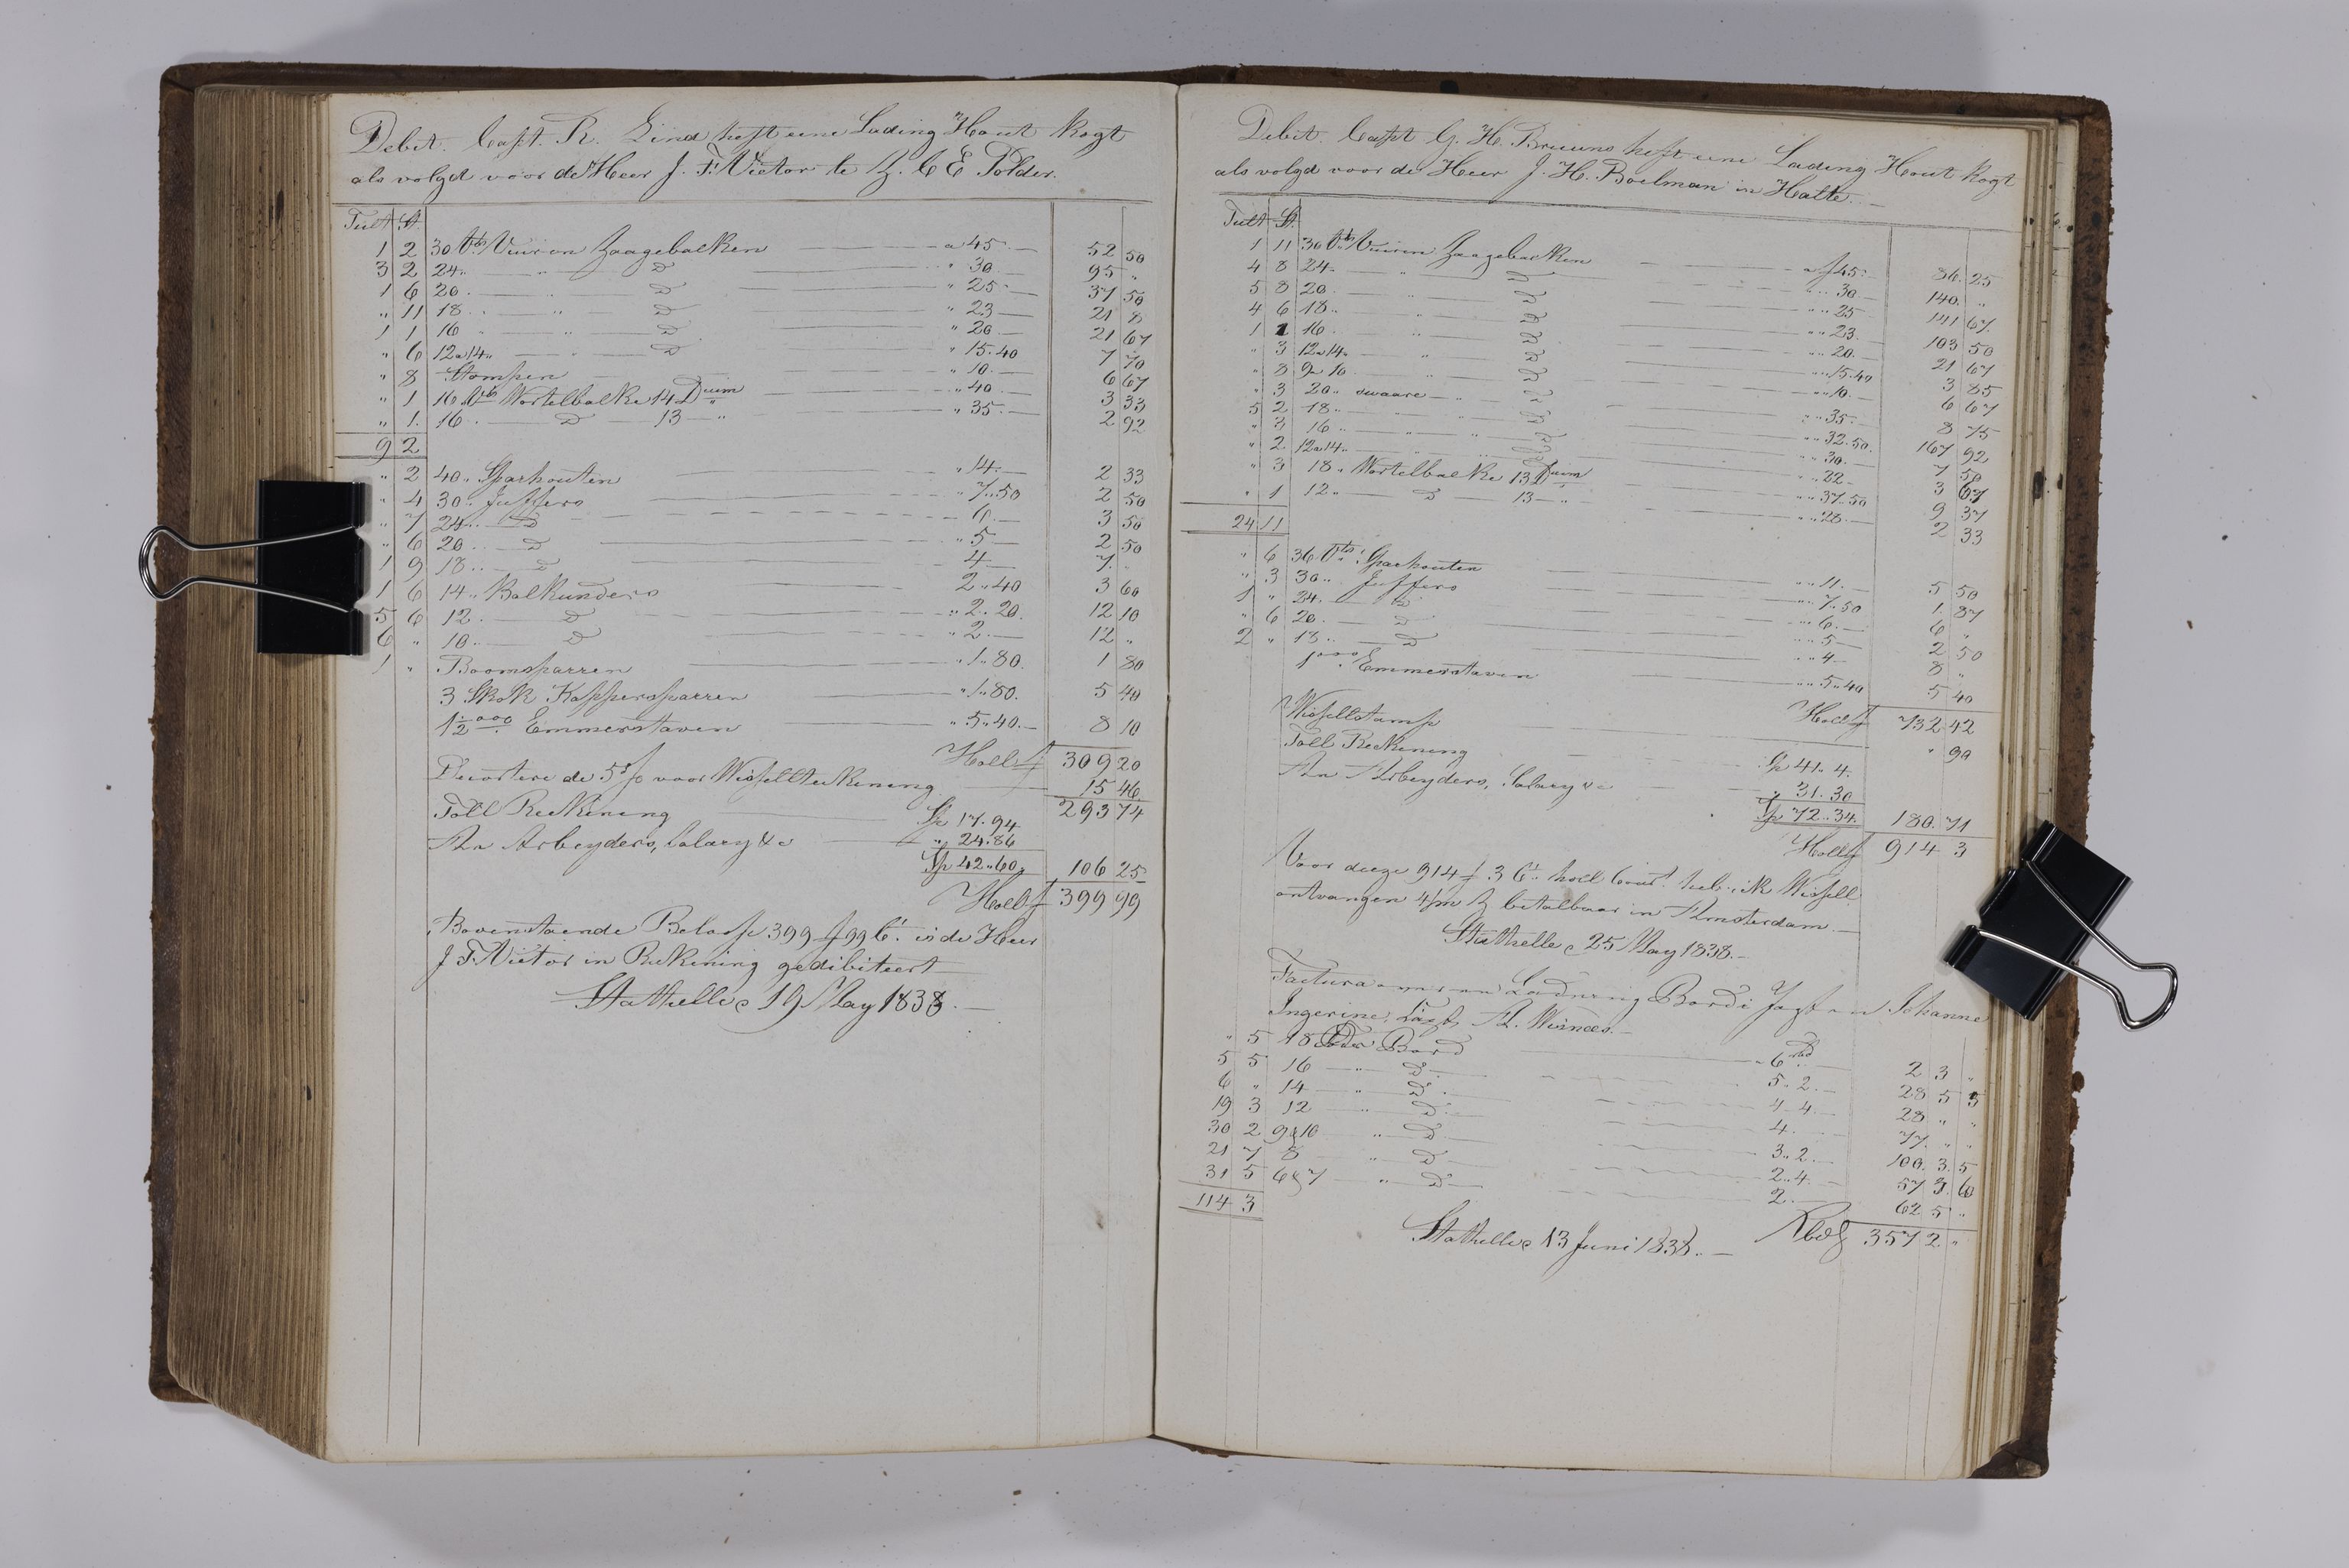 Debit. Capt. R. Lind heft eene Lading Hout kogt
als volgd voor de Heer J. F. Vietor te B. C E Polder.
Tult St.
1 2 30 Vts Vuuren Zaagebalken a 45.— 52 50
3 2 24 „ „ D „ 30.— 95 „
1 6 20 „ „ D „ 25.— 37 50
„ 11 18 „ „ D „ 23.— 21 8
1 1 16 „ „ D „ 20.— 21 67
„ 6 12 a 14 „ „ D „ 15.40 7 70
„ 8 Stompen „ 10.— 6 67
„ 1 16 Vts Wortelbalke 14 Duim „ 40 3 33
„ 1. 16 „ D 13 „ „ 35.— 2 92
9 2
„ 2 40 „ Sparhouten „ 14.— 2 33
„ 4 30 „ Juffers „ 7.50 2 50
„ 7 24 „ D 6.— 3 50
„ 6 20 „ D „ 5 2 50
1 9 18 „ D 4 7. „
1 6 14 „ Balkunders 2 „ 40 3 60
5 6 12. D „ 2. 20. 12 10
6 „ 10 „ D „ 2.— 12 „
1 „ Boomsparren „ 1 „ 80. 1 80
3 Skok Kappersparren „ 1 „ 80. 5 40
1½ 000 Emmerstaven „ 5 „ 40.— 8 10
Holl f 309 20
de 5 p voor Wissellrekening 15 46
293 74
Toll Rekening Sp 17. 94
An Arbeyders, Salary &c „ 24. 86
Sp 42 „ 60 106 25
Holl f 399 99
Bovenstaende Belop 399 f 99 Ct. is de Heer
J F. Vietor in Rekening gedibiteert
Stathelle 19 May 1838.—
Debit. Capt G. H. Bruuns heft eene Lading Hout kogt
als volgd voor de Heer J. H. Boelman in Halte.—
Tult St.
1 11 30 Vts Vuuren Zaagebalken a f 45.— 86. 25
4 8 24 „ „ D „ „ 30 140. „
5 8 20 „ „ D „ „ 25 141 67
4 6 18 „ „ D „ „ 23. 103 50
1 1 16 „ „ D „ „ 20.— 21 67
„ 3 12 a 14 „ „ D „ „ 15.40 3 85
„ 8 9 a 10 „ D „ „ 10.— 6 67
„ 3 20 „ swaare „ D „ „ 35.— 8 75
5 2 18 „ „ „ D „ „ 32.50. 167 92
„ 3 16 „ „ „ D „ „ 30.— 7 50
„ 2 12 a 14 „ „ „ D „ „ 22 3 67
„ 3 18 „ Wortelbalke 13 Duim „ „ 37.50 9 37
„ 1 12 „ D 13 „ „ „ 28.— 2 33
24 11
„ 6 36 Vts Sparhouten „ „ 11. 5 50
„ 3 30 „ Juffers „ „ 7.50 1. 87
1 „ 24. D „ „ 6.— 6 „
„ 6 20. D „ „ 5 2 50
2 „ 18 „ D „ „ 4 8 „
1000 Emmerstaven „ „ 5 „ 40 5 40
Holl f 732 42
Wissellstamp „ 90
Toll Rekening Sp 41. 4.
An Arbeyders, Salary &c „ 31. 30
Sp 72 „ 34. 180. 71
Holl f 914 3
Voor deeze 914 f 3 Ct. holl Cour. heb ik Wissell
ontvangen 4/m betalbaar in Amsterdam.—
Stathelle 25 May 1838.—
Factura over en Ladning Bord i Jagten Johanne
Ingerine,
„ 5 18 Bord „ 6 2 3 „
5 5 16 „ D 5. 2. 28 5 3
6 „ 14 „ D. 4. 4 28 „ „
19 3 12 „ D. 4. 77. „ „
30 2 9 & 10 „ D 3 „ 2. 100. 3. 5
21 7 8 „ D 2 „ 4. 57 3. 6
31 5 6 & 7 „ D 2. 62 5 „
114 3
Stathelle 13 Juni 1838.— 357 2 „